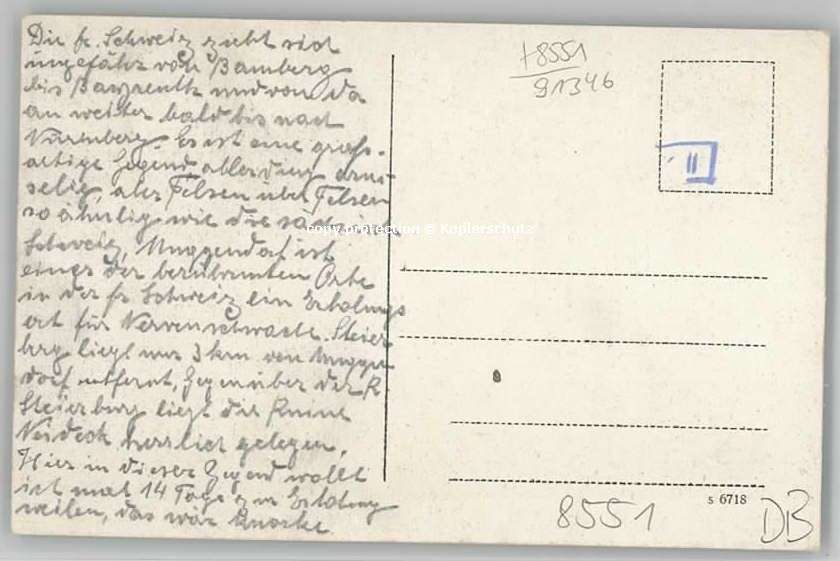 Die fr. Schweiz zieht sich
ungefähr von Bamberg
bis Bayreuth und von da
an weiter bald bis nach
Nürenberg. Es ist eine groß-
artige Gegend allerdings arm-
selig, aber Felsen über Felsen
so ähnlig wie die sächsisch
Schweiz, Muggendorf ist
eines der berühmten Orte
in der fr Schweiz ein Erholungs
ort für Nervenschwache. Steier
berg liegt nur 3 km von Muggen
dorf entfernt, Gegenüber der R.
Steierburg liegt die Ruine
Neideck herrlich gelegen.
Hier in dieser Gegend wollt
ich mal 14 Tage zur Erholung
weilen, das wär Knorke
+8551
91346
II
copy protection © Kopierschutz
s 6718
8551
DB